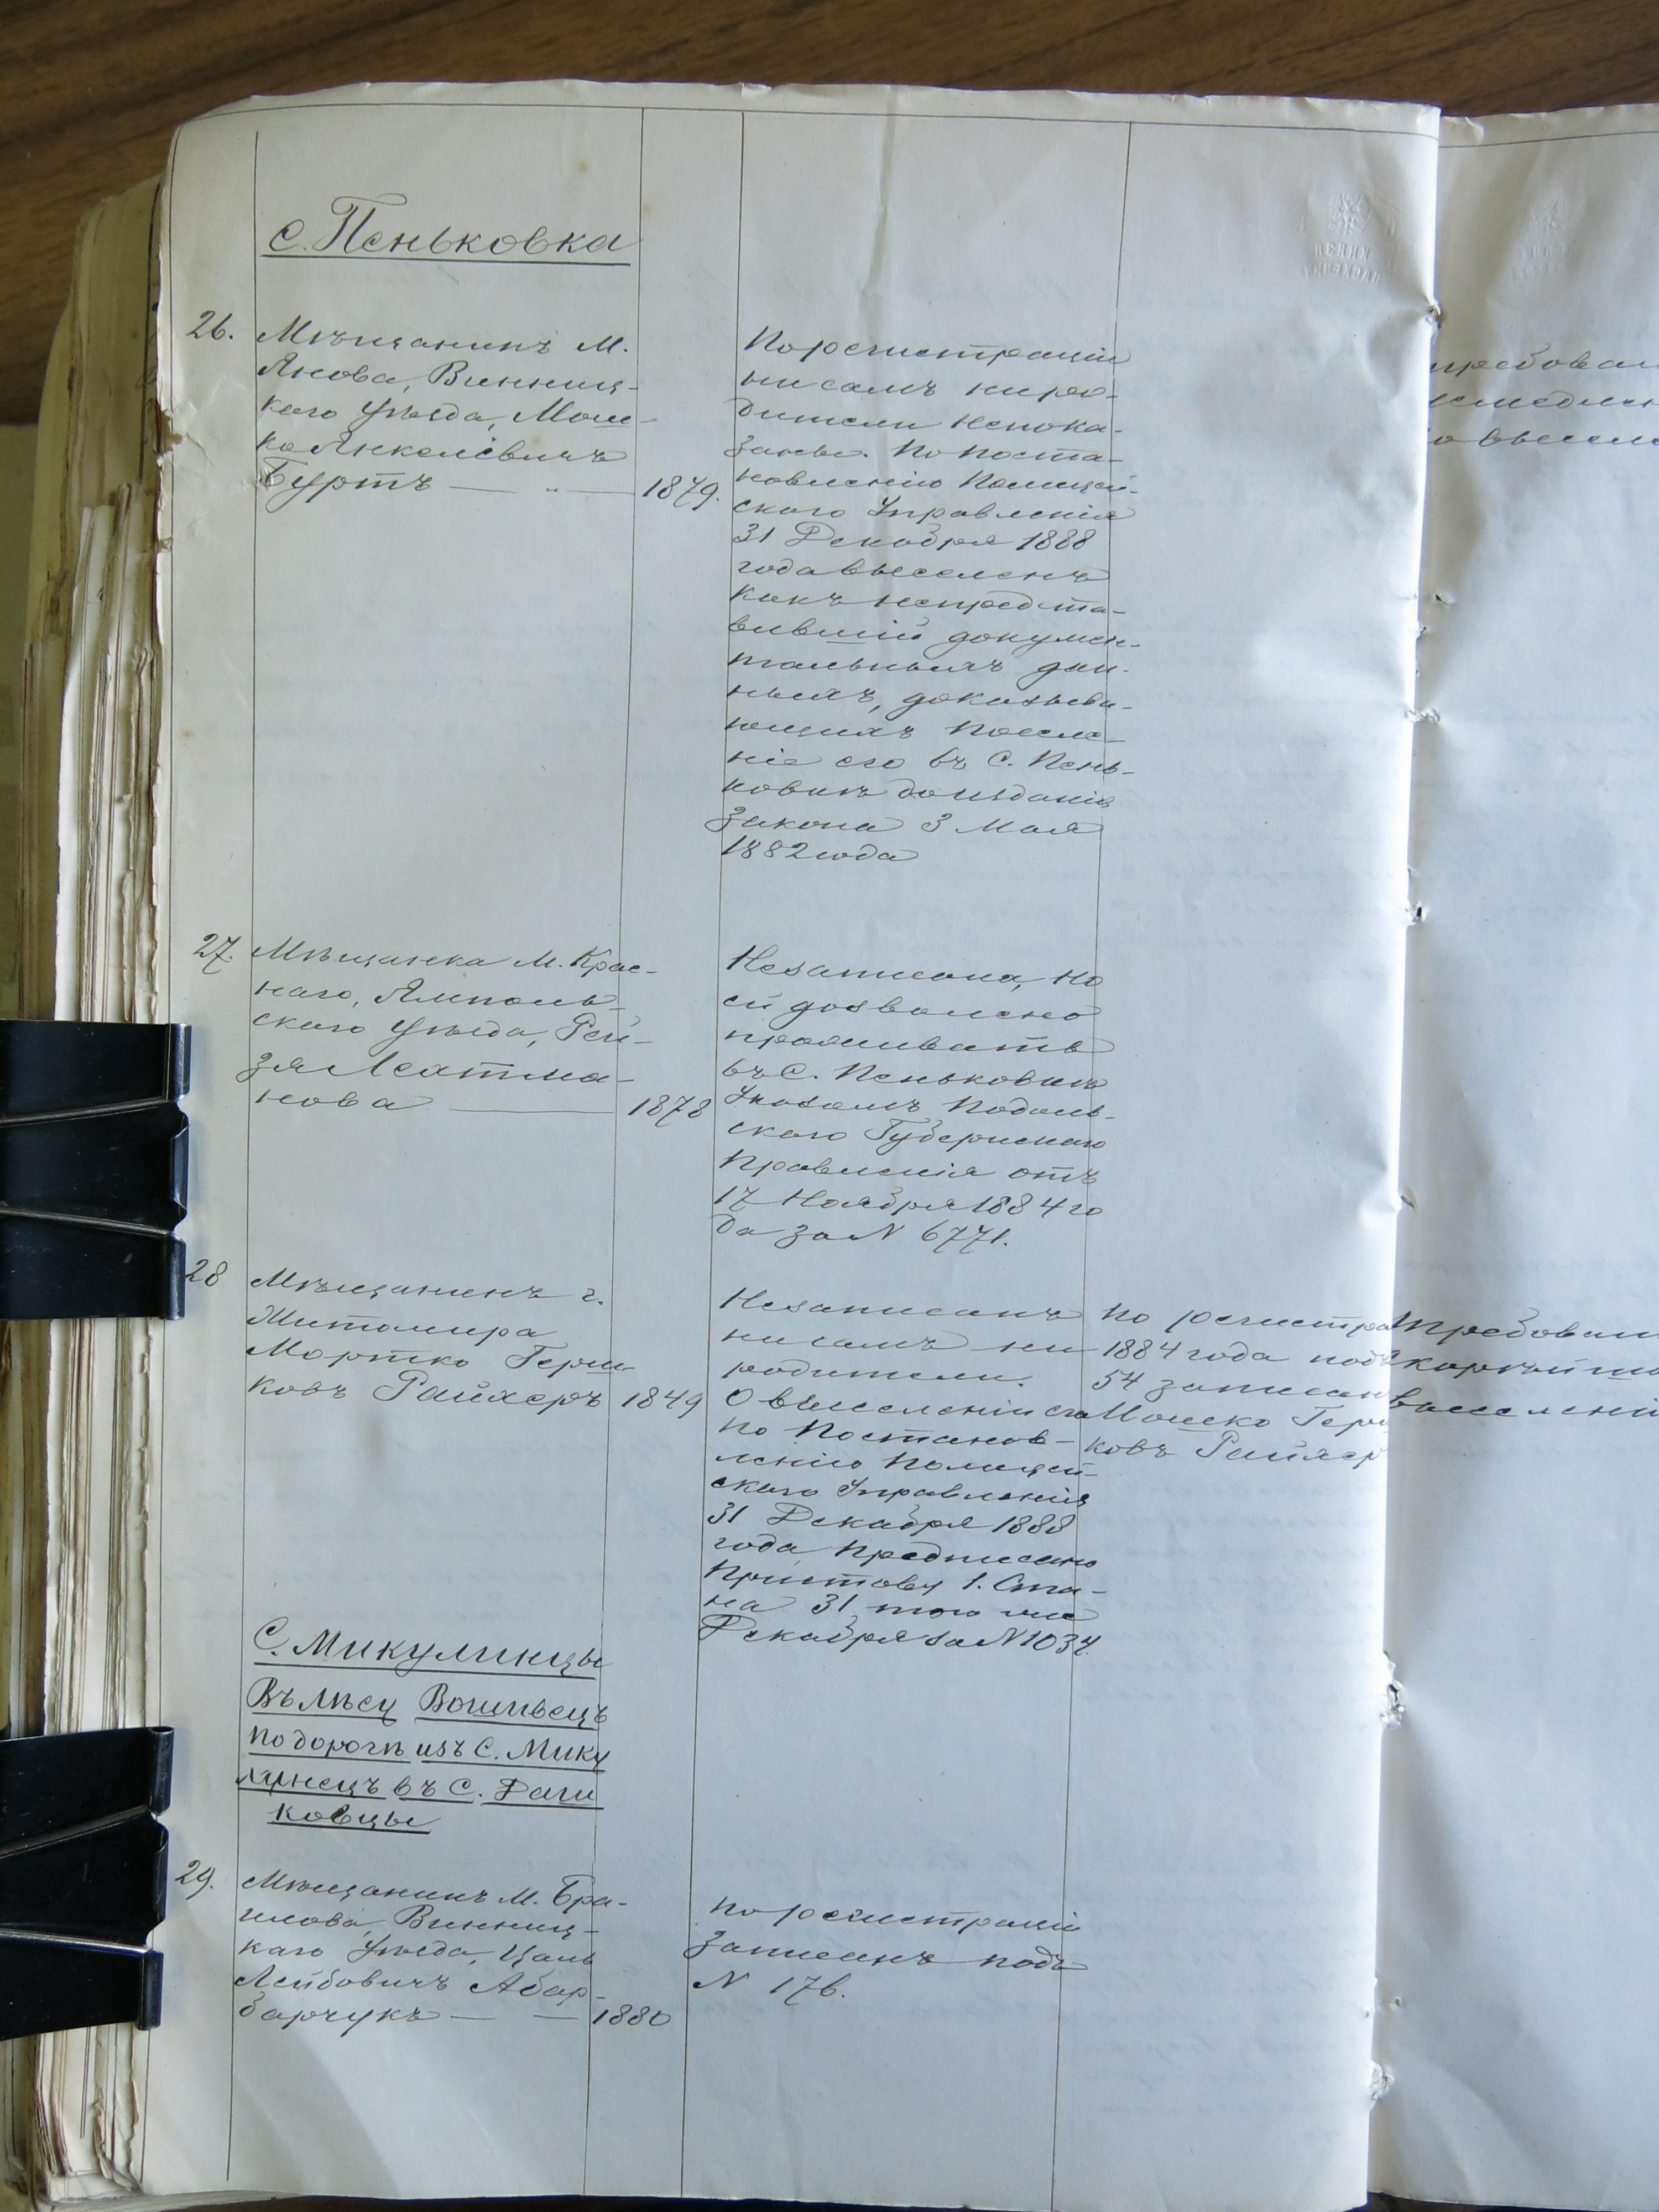 с. Пеньковка
26. Мѣщанинъ М.
Янова, Винниц-
каго уѣзда, Мош-
ко Янкелевичъ
Буртъ — „ — 1879.
По регистраціи
ни самъ ни ро-
дители непока-
заны. По поста-
новленію Полицей-
скаго Управленія
31 Декабря 1888
года выселенъ
какъ непредста-
вившій докумен-
тальныхъ дан-
ныхъ, доказыва-
ющихъ поселе-
ніе его въ С. Пень-
ковкѣ до изданія
Закона 3 Мая
1882 года
27. Мѣщанка М. Крас-
наго, Ямполь-
скаго уѣзда, Рей-
зя Лехтма-
нова — 1878
Незаписана, но
ей дозволено
проживать
въ С. Пеньковкѣ
Указомъ Подоль-
скаго Губернскаго
Правленія отъ
17 Ноября 1884 го
да за № 6771.
28 Мѣщанинъ г.
Житомира
Мортко Герш-
ковъ Райхеръ 1849
Незаписанъ
ни самъ ни
родители.
О выселеніи его
по Постанов-
ленію Полицей-
скаго Управленія
31 Декабря 1888
года предписано
Приставу 1. Ста-
на 31 того же
Декабря за № 1034.
По регистра
1884 года подъ
54 записан
Мошко Герш
ковъ Райхер
С. Микулинцы
Въ лѣсу Вошивецъ
по дорогѣ изъ С. Мику
линецъ въ С. Даш
ковцы
29. Мѣщанинъ М. Бра-
илова, Винниц-
каго уѣзда, Цаль
Лейбовичъ Абар-
барчукъ — — 1880
По регистраціи
записанъ подъ
№ 176.
требован
выселені